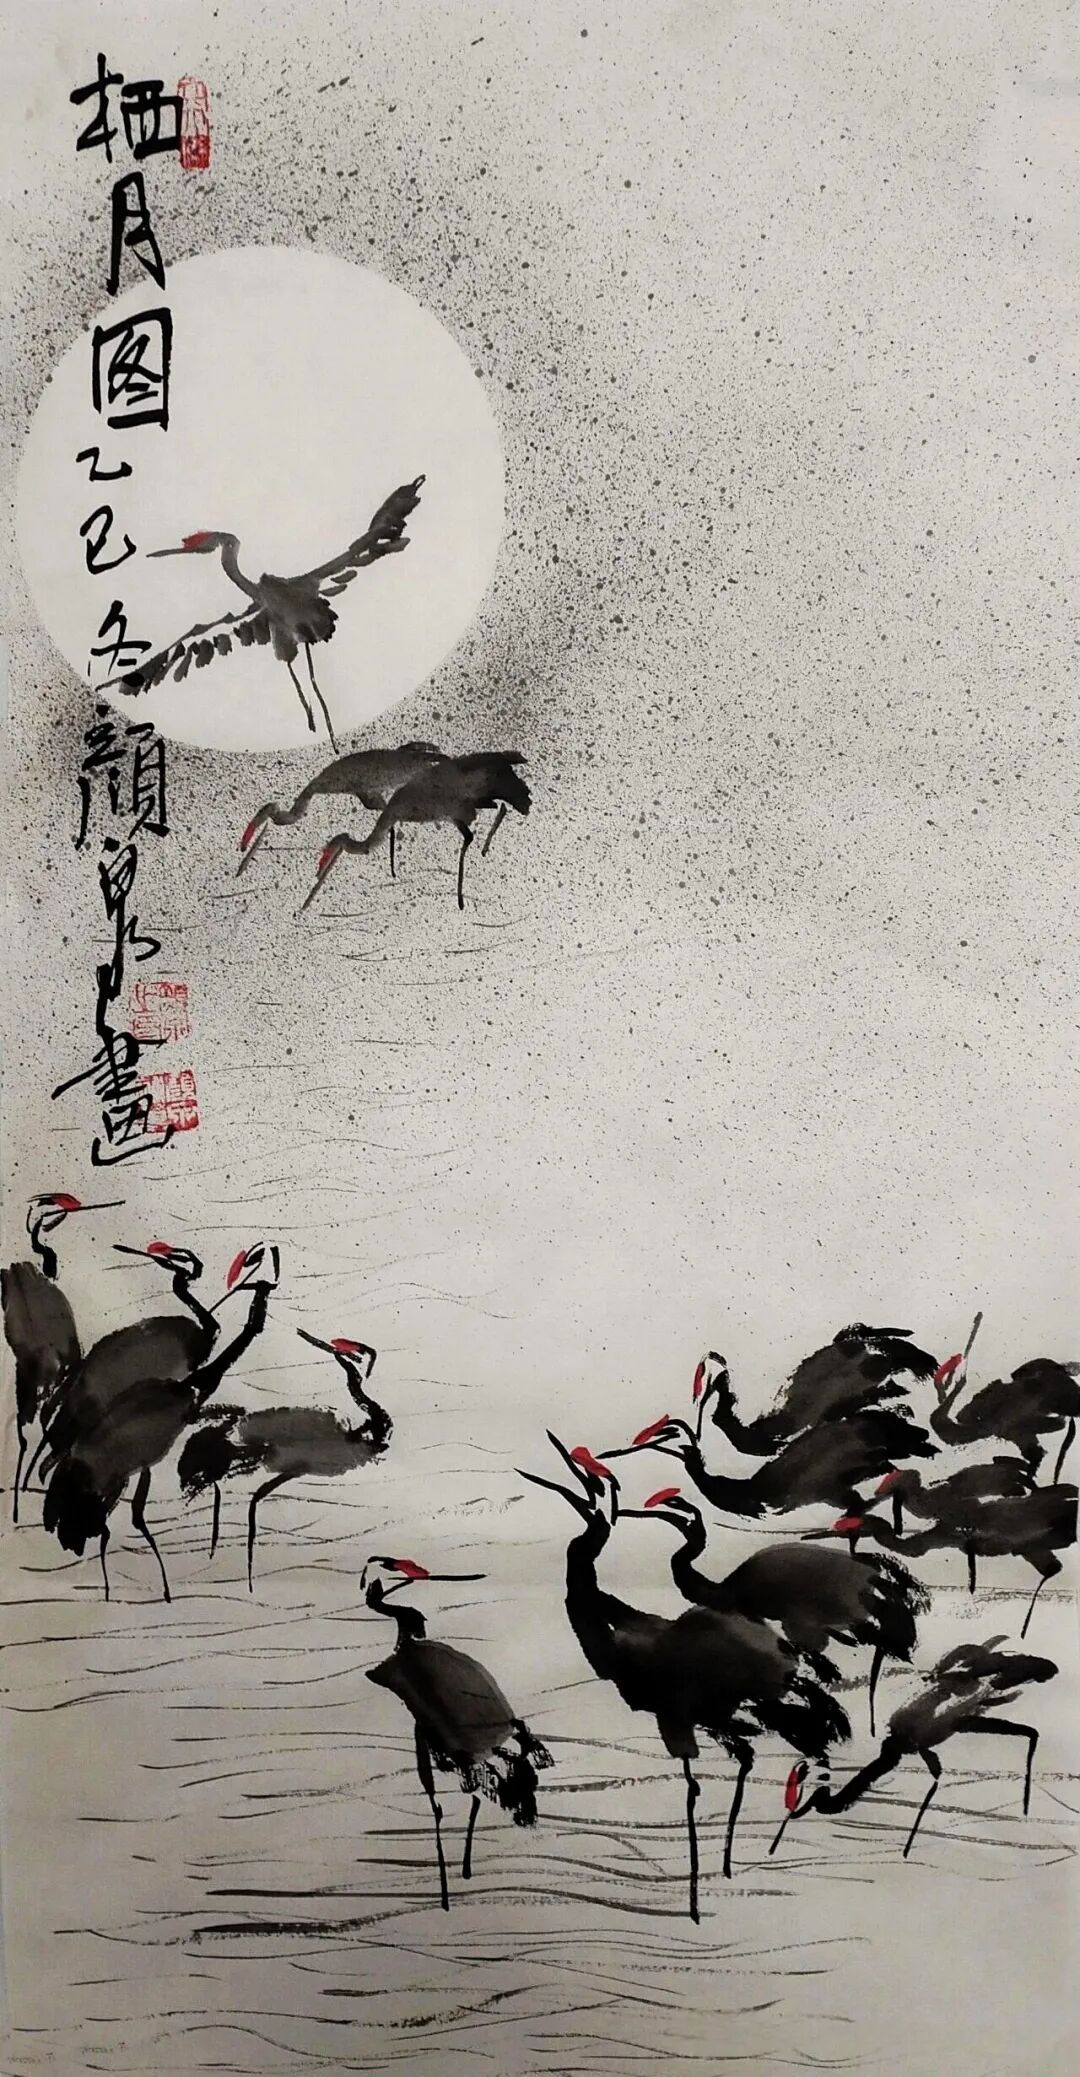 栖月图乙巳冬颜泉画